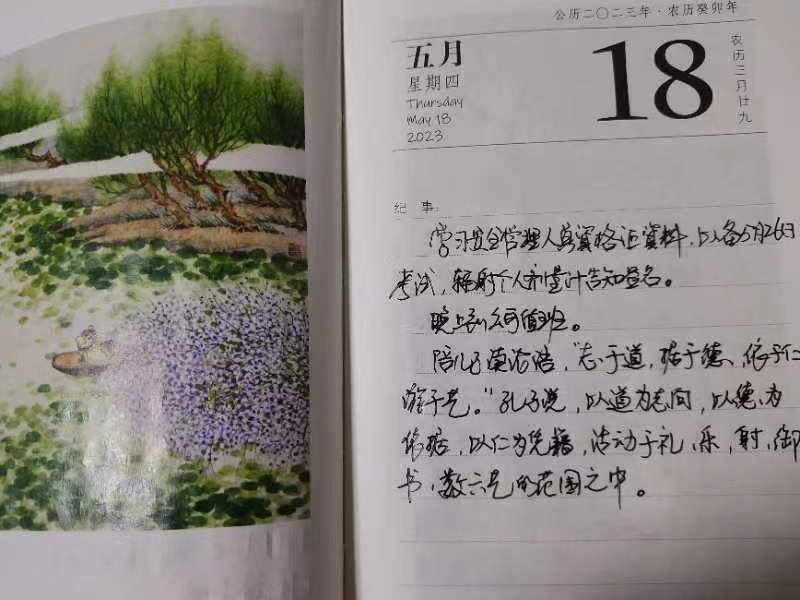 公历二〇二三年·农历癸卯年
五月
星期四
Thursday
May 18
2023
18
农历三月廿九
纪 事:
学习安全管理人员资格证资料,以备5月26日
考试,辐射个人剂量计告知签名。
晚上到公司值班。
陪儿子读论语,“志于道,据于德、依于仁
游于艺。”孔子说,以道为志向,以德为
依据,以仁为凭籍,活动于礼、乐,射,御
书、数六艺的范围之中。